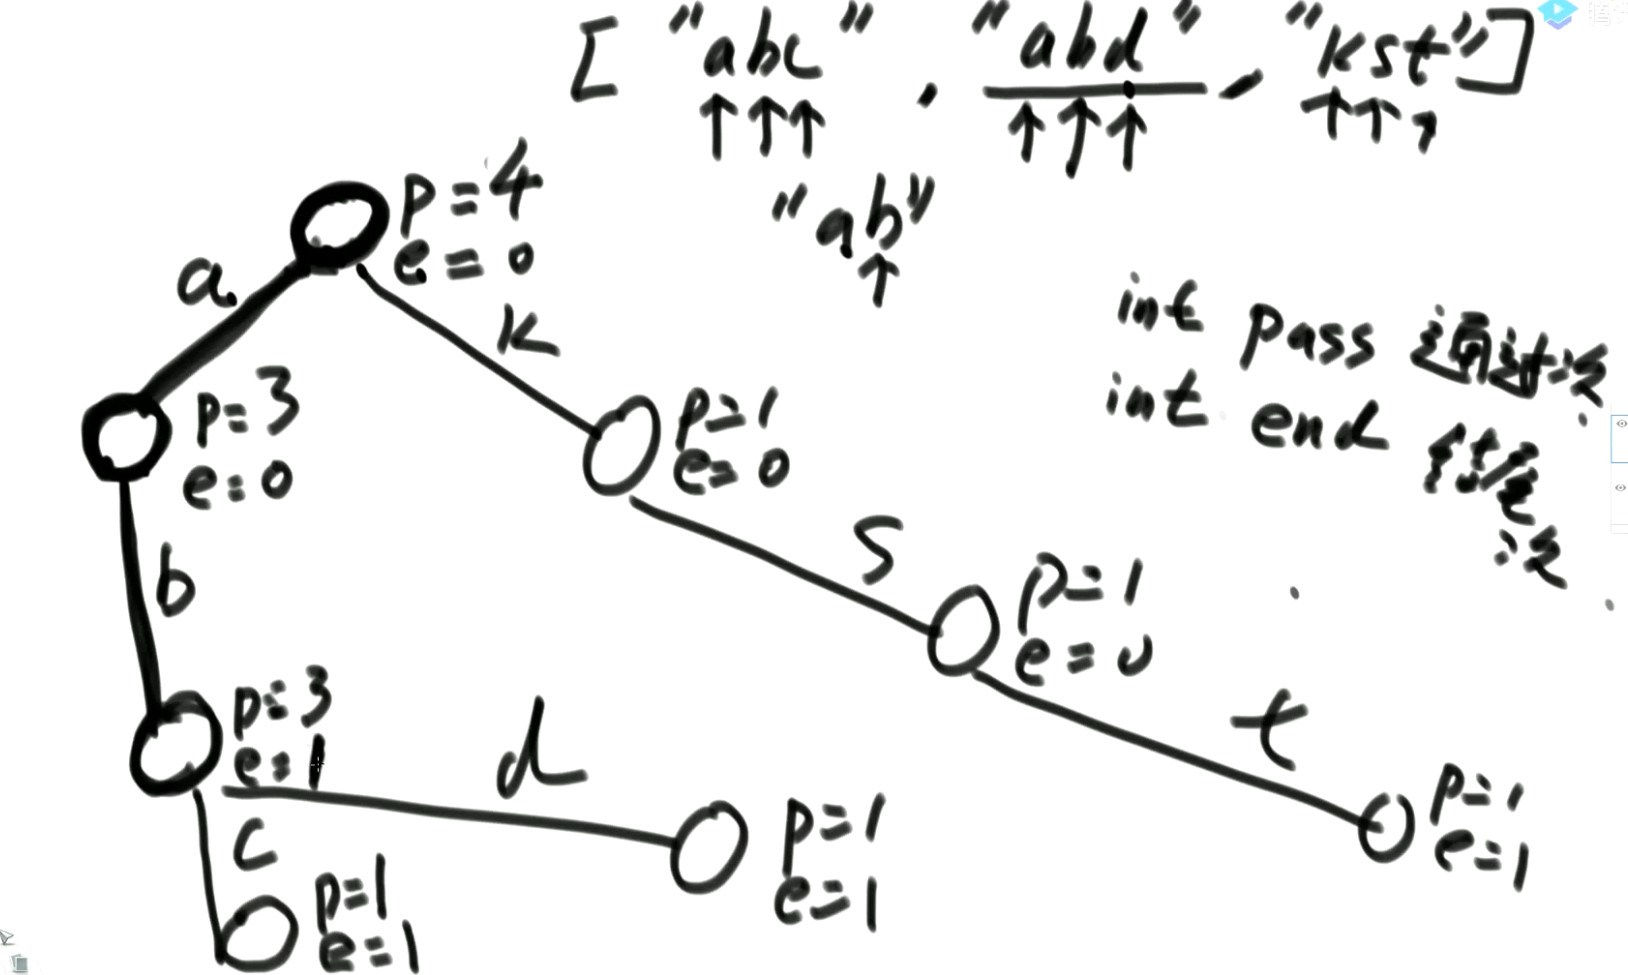 ["abc", "abd", "kst"]
"ab"
p=4
e=0
a
k
int pass 通过次
int end 结尾
次
p=3
e=0
p=1
e=0
b
s
p=1
e=0
p=3
e=1
d
t
c
p=1
e=1
p=1
e=1
p=1
e=1